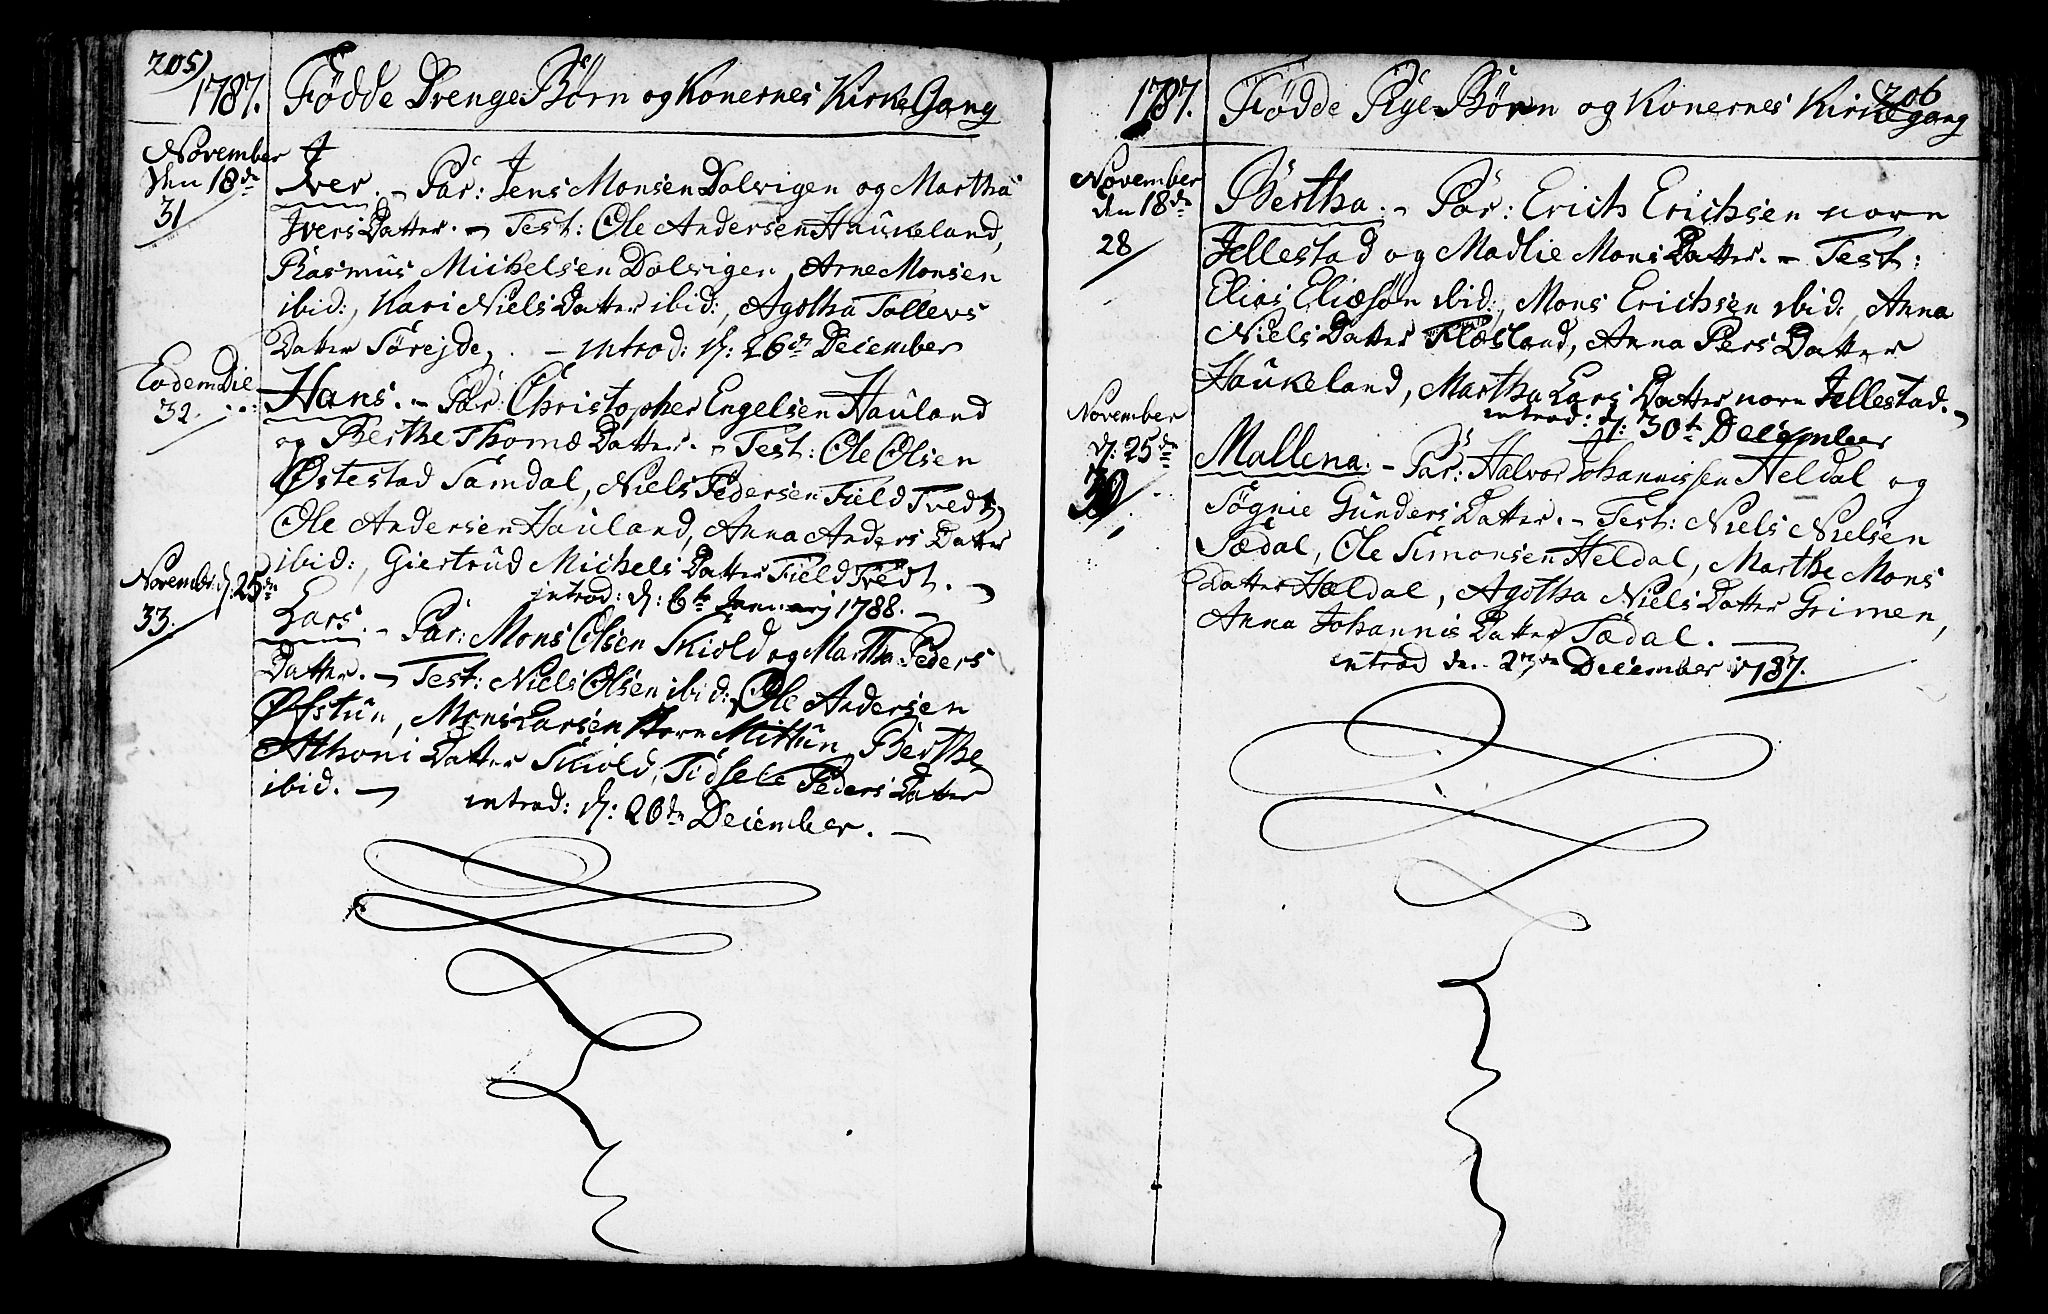 205)
1787. Fødde Drenge Børn og Konernes Kirke Gang
November
den 18de
31
Iver. - Par: Jens Monsen Dolvigen og Martha
Ivers Datter. - Test: Ole Andersen Haukeland,
Rasmus Michelsen Dolvigen, Arne Monsen
ibid:, Kari Niels Datter ibid:, Agotha Tollevs
Datter Sørejde, - introd: d: 26de December
Eodem Die
32.
Hans. - Par: Christopher Engelsen Hauland
og Berthe Thomæ Datter. - Test: Ole Olsen
Østestad Samdal, Niels Pedersen Field Tvedt,
Ole Andersen Hauland, Anna Anders Datter
ibid:, Giertrud Michels Datter Field Tvedt. -
introd: d: 6te Januarij 1788. -
Novembr d: 25de
33.
Lars. - Par: Mons Olsen Skiold og Martha Peders
Datter. - Test: Niels Olsen ibid:, Ole Andersen
Øfstun, Mons Larsen Horn Mittun, Berthe
Athoni Datter Skiold, Sidsele Peders Datter
ibid. - introd: d: 26de December. -
206
1787. Fødde Pige Børn og Konernes Kirke gang
November
den 18de
28
Bertha. - Par: Erich Erichsen norn
Jellestad og Madlie Mons Datter. - Test:
Elias Eliæsøn ibid:, Mons Erichsen ibid:, Anna
Niels Datter Flæsland, Anna Pers Datter
Haukeland, Martha Lars Datter norn Jellestad. -
introd: d: 30te December
November
d: 25de
30
Mallena. - Par: Halvor Johannissen Heldal og
Søgnie Gunders Datter. - Test: Niels Nielsen
Sædal, Ole Simonsen Heldal, Marthe Mons
Datter Hældal, Agotha Niels Datter Grimen,
Anna Johannis Datter Sædal. -
introd den 27de December 1787.